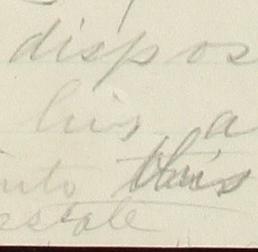 dispos
his a
into this
estate